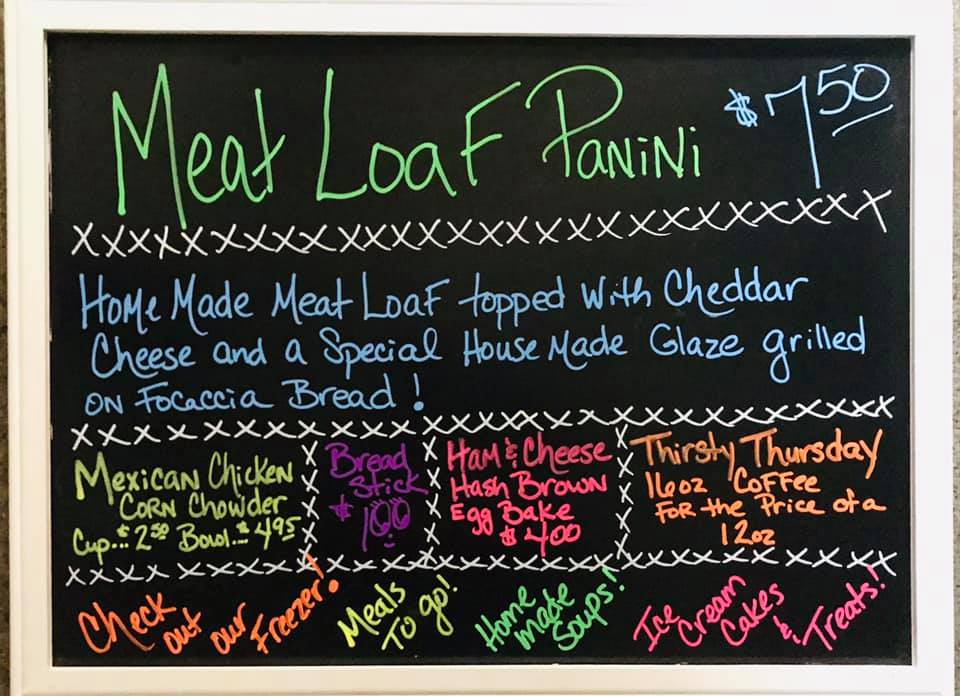 Meat Loaf Panini $7.50
Home Made Meat Loaf topped with Cheddar
Cheese and a Special House Made Glaze grilled
on Focaccia Bread!
Mexican Chicken
Corn Chowder
Cup... $2.50 Bowl... $4.95
Bread
Stick
$1.00
Ham & Cheese
Hash Brown
Egg Bake
$4.00
Thirsty Thursday
16oz Coffee
For the Price of a
12oz
Check
out
our
Freezer!
Meals
To go!
Home
made
Soups!
Ice
Cream
Cakes
&
Treats!